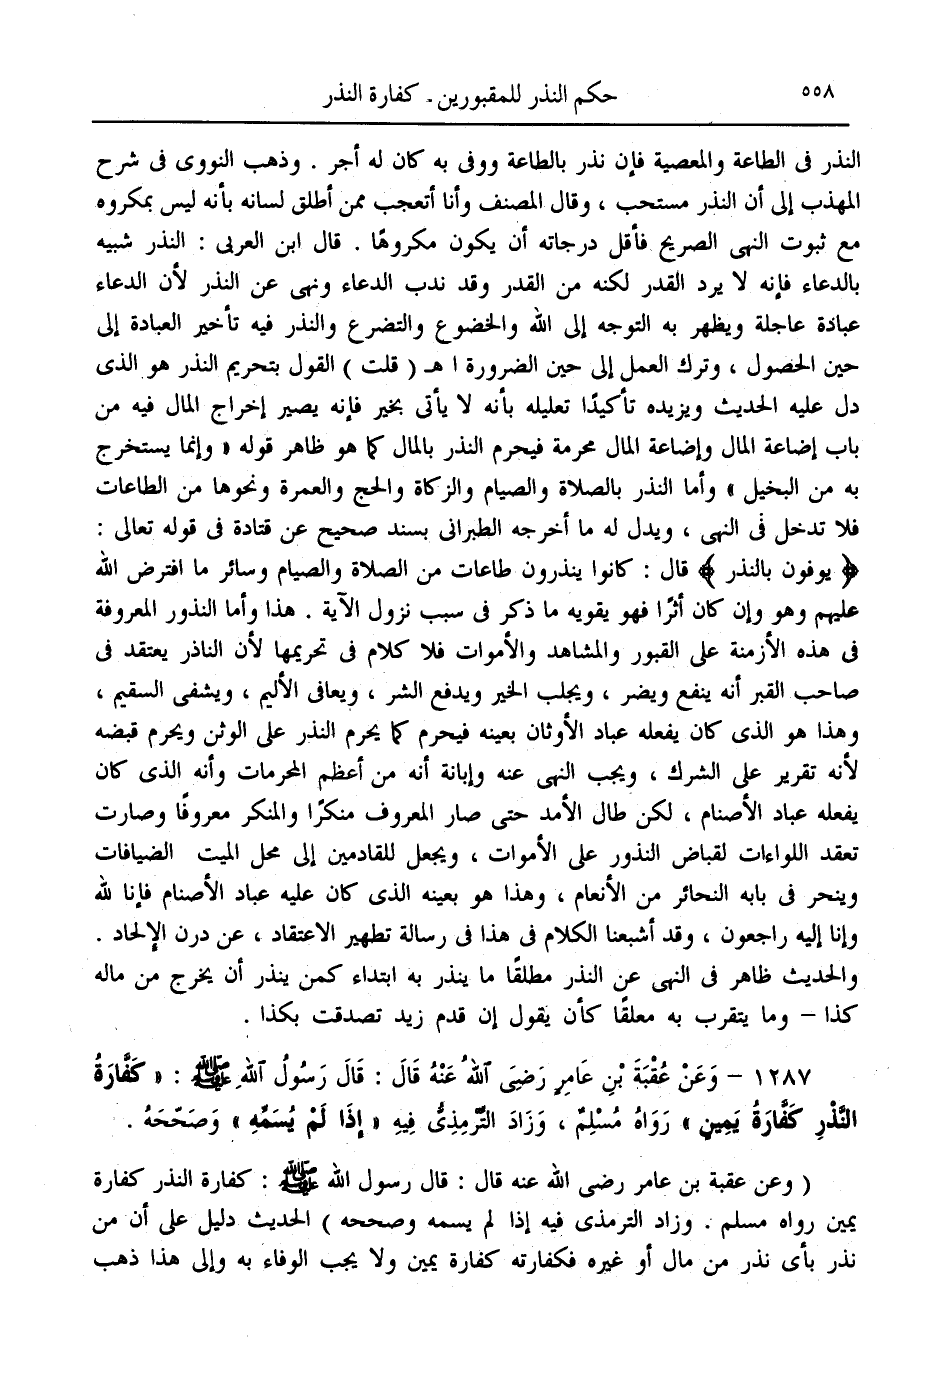 ٥٥٨
حكم النذر للمقبورين - كفارة النذر
النذر فى الطاعة والمعصية فإن نذر بالطاعة ووفى به كان له أجر . وذهب النووى فى شرح
المهذب إلى أن النذر مستحب ، وقال المصنف وأنا أتعجب ممن أطلق لسانه بأنه ليس بمكروه
مع ثبوت النهى الصريح فأقل درجاته أن يكون مكروهًا . قال ابن العربى : النذر شبيه
بالدعاء فإنه لا يرد القدر لكنه من القدر وقد ندب الدعاء ونهى عن النذر لأن الدعاء
عبادة عاجلة ويظهر به التوجه إلى الله والخضوع والتضرع والنذر فيه تأخير العبادة إلى
حين الحصول ، وترك العمل إلى حين الضرورة ا هـ ( قلت ) القول بتحريم النذر هو الذى
دل عليه الحديث ويزيده تأكيدًا تعليله بأنه لا يأتى بخير فإنه يصير إخراج المال فيه من
باب إضاعة المال وإضاعة المال محرمة فيحرم النذر بالمال كما هو ظاهر قوله « وإنما يستخرج
به من البخيل » وأما النذر بالصلاة والصيام والزكاة والحج والعمرة ونحوها من الطاعات
فلا تدخل فى النهى ، ويدل له ما أخرجه الطبرانى بسند صحيح عن قتادة فى قوله تعالى :
﴿ يوفون بالنذر ﴾ قال : كانوا ينذرون طاعات من الصلاة والصيام وسائر ما افترض الله
عليهم وهو وإن كان أثرًا فهو يقويه ما ذكر فى سبب نزول الآية . هذا وأما النذور المعروفة
فى هذه الأزمنة على القبور والمشاهد والأموات فلا كلام فى تحريمها لأن الناذر يعتقد فى
صاحب القبر أنه ينفع ويضر ، ويجلب الخير ويدفع الشر ، ويعافى الأليم ، ويشفى السقيم ،
وهذا هو الذى كان يفعله عباد الأوثان بعينه فيحرم كما يحرم النذر على الوثن ويحرم قبضه
لأنه تقرير على الشرك ، ويجب النهى عنه وإبانة أنه من أعظم المحرمات وأنه الذى كان
يفعله عباد الأصنام ، لكن طال الأمد حتى صار المعروف منكرًا والمنكر معروفًا وصارت
تعقد اللواءات لقباض النذور على الأموات ، ويجعل للقادمين إلى محل الميت الضيافات
وينحر فى بابه النحائر من الأنعام ، وهذا هو بعينه الذى كان عليه عباد الأصنام فإنا لله
وإنا إليه راجعون ، وقد أشبعنا الكلام فى هذا فى رسالة تطهير الاعتقاد ، عن درن الإلحاد .
والحديث ظاهر فى النهى عن النذر مطلقًا ما ينذر به ابتداء كمن ينذر أن يخرج من ماله
كذا – وما يتقرب به معلقًا كأن يقول إن قدم زيد تصدقت بكذا .
١٢٨٧ – وَعَنْ عُقْبَةَ بْنِ عَامِرٍ رَضِىَ ٱللهُ عَنْهُ قَالَ : قَالَ رَسُولُ ٱللهِ ﷺ : « كَفَّارَةُ
النَّذْرِ كَفَّارَةُ يَمِينٍ » رَوَاهُ مُسْلِمٌ ، وَزَادَ التِّرْمِذِىُّ فِيهِ « إِذَا لَمْ يُسَمِّهِ » وَصَحَّحَهُ .
( وعن عقبة بن عامر رضى الله عنه قال : قال رسول الله ﷺ : كفارة النذر كفارة
يمين رواه مسلم . وزاد الترمذى فيه إذا لم يسمه وصححه ) الحديث دليل على أن من
نذر بأى نذر من مال أو غيره فكفارته كفارة يمين ولا يجب الوفاء به وإلى هذا ذهب